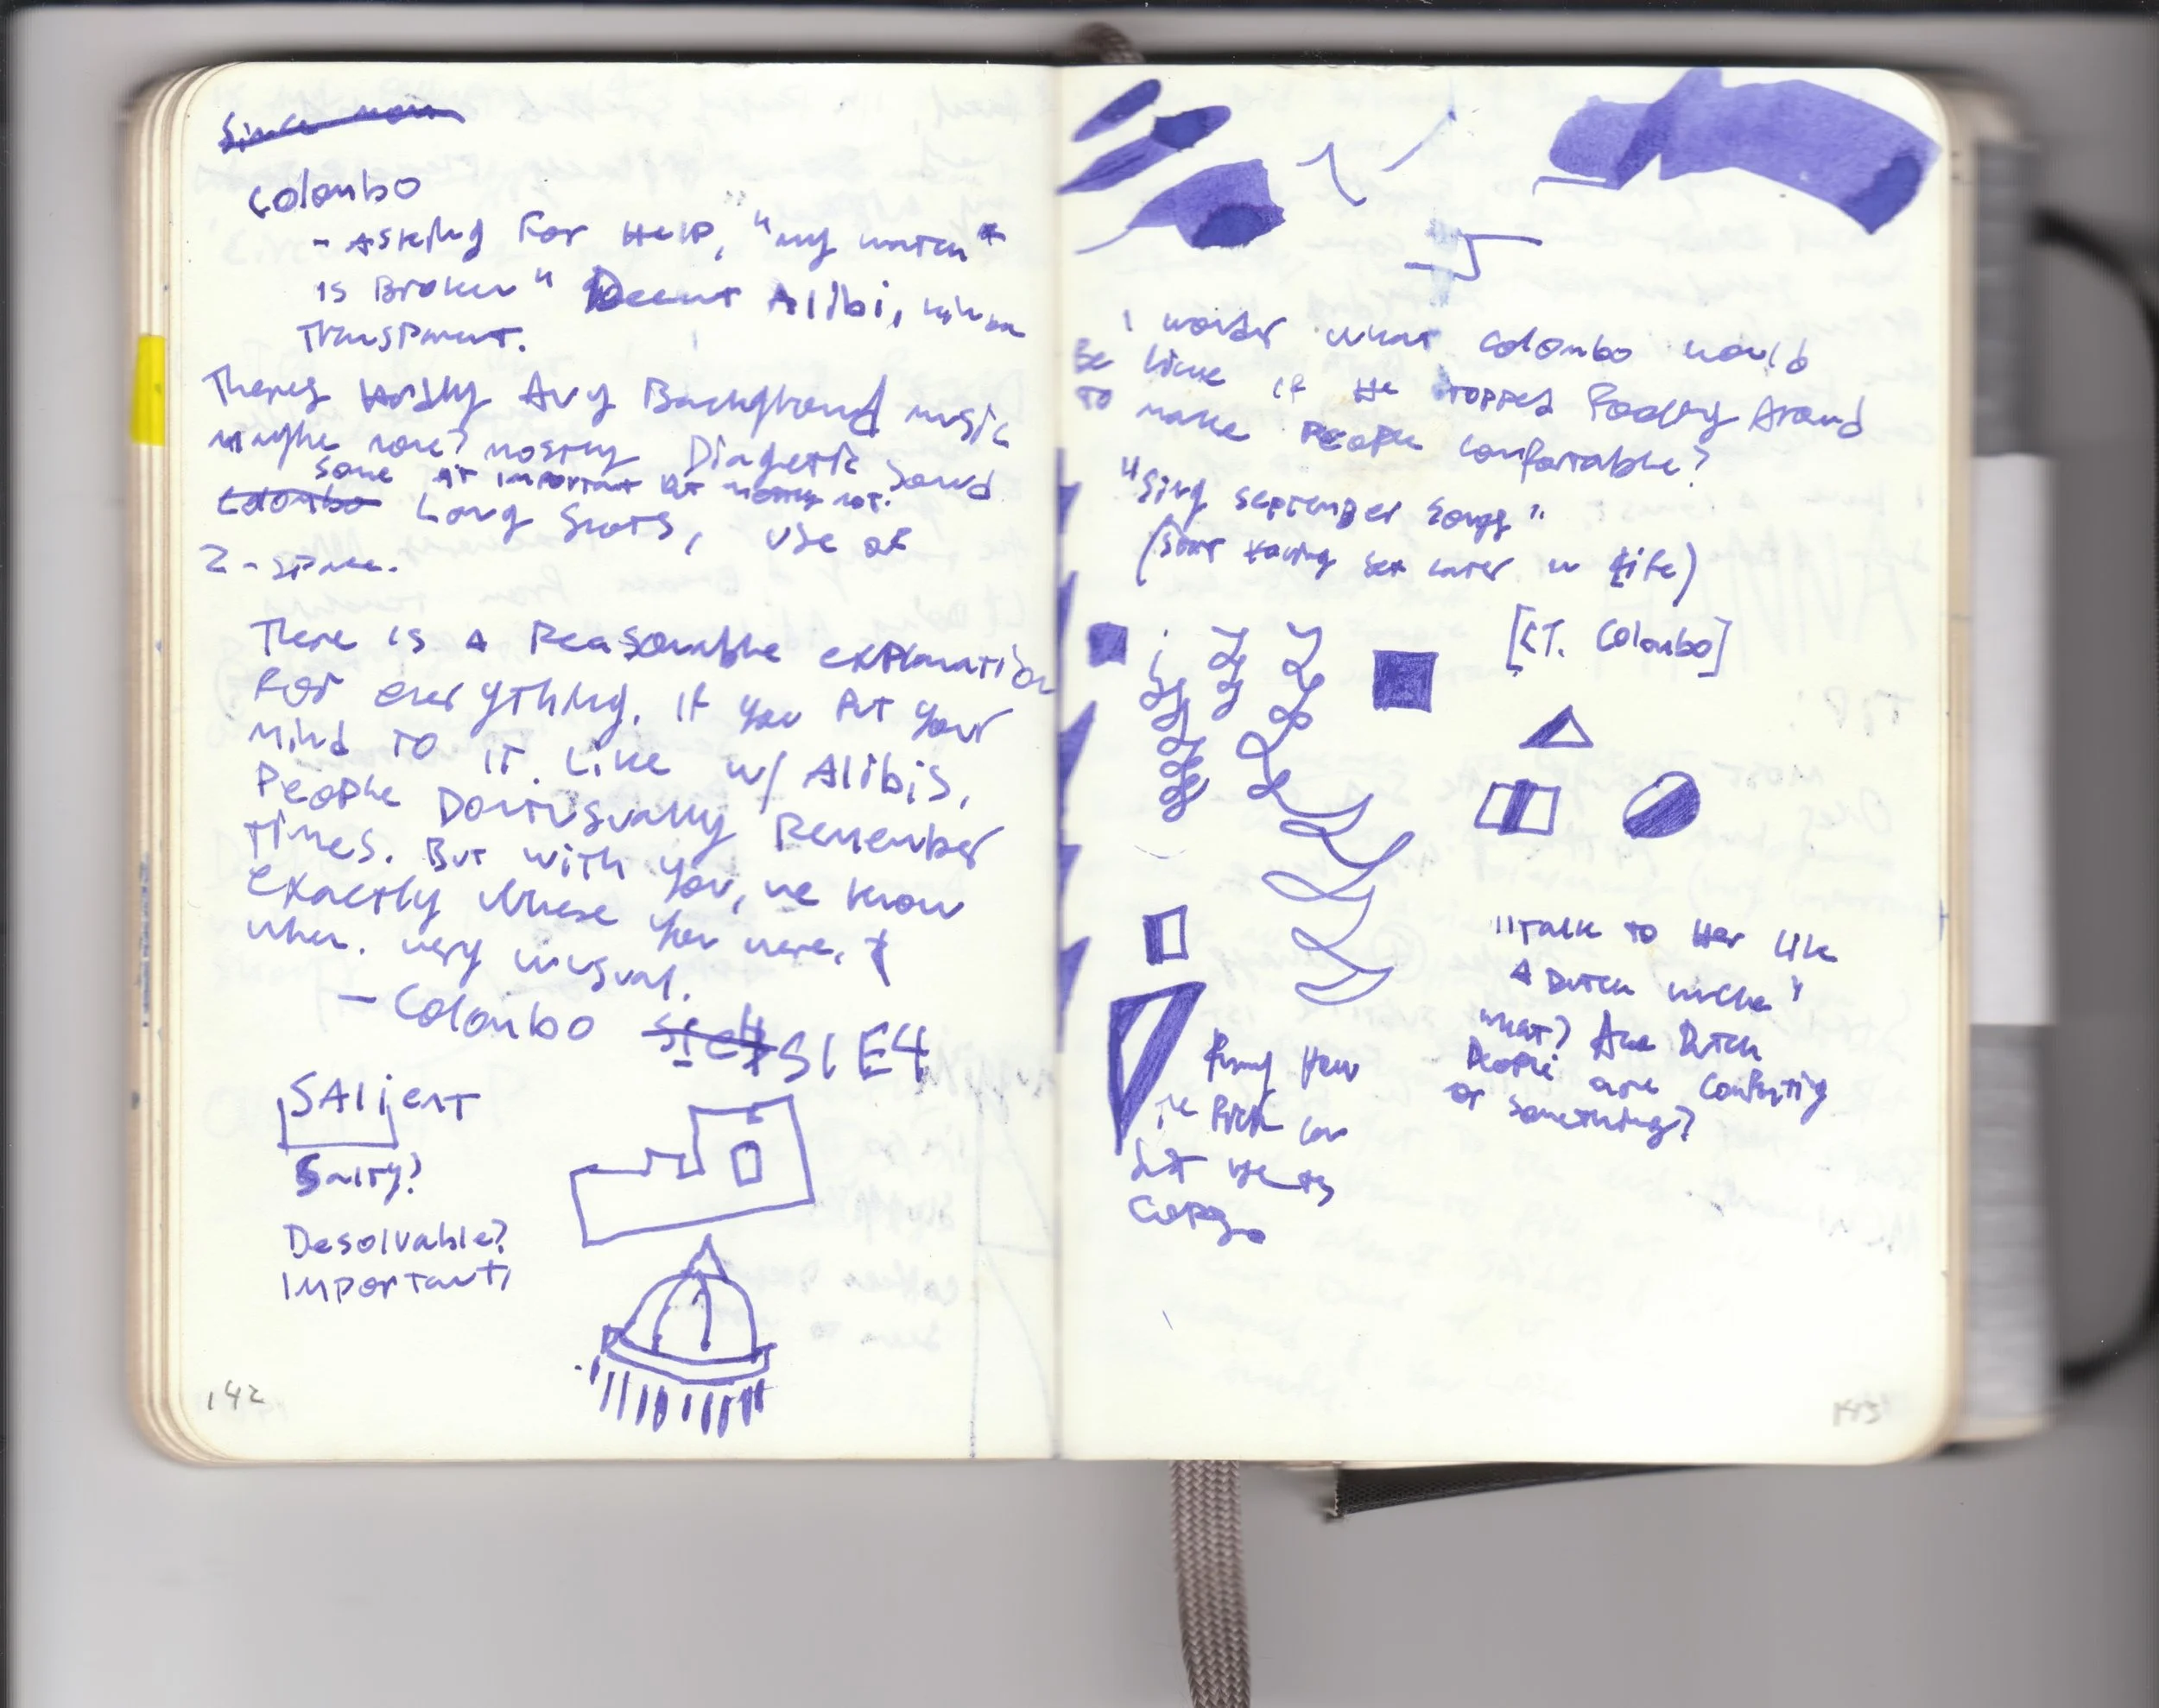 Since now
Colombo
- Asking For Help, "my watch
is Broken" Decent Alibi,
Transparent.
Theres Hardly Any Background music
maybe none? mostly Diagetic Sound
some at important but mostly not.
Colombo Long Shots, use of
Z-space.
There is a Reasonable explanation
For everything. If you Put your
mind to it. Like w/ Alibis,
People Dont usually Remember
times. But with you, we know
exactly where you were, &
when. very unusual.
- Colombo S1E4
SAlient
Salty?
Desolvable?
important?
142
I wonder what Colombo would
Be like if He stopped Fooling Around
to make People comfortable?
"Sing September Songs"
(start Having sex later in life)
[LT. Colombo]
"Talk to Her like
A Dutch uncle"
what? Are Dutch
People are comforting
or something?
Funny How